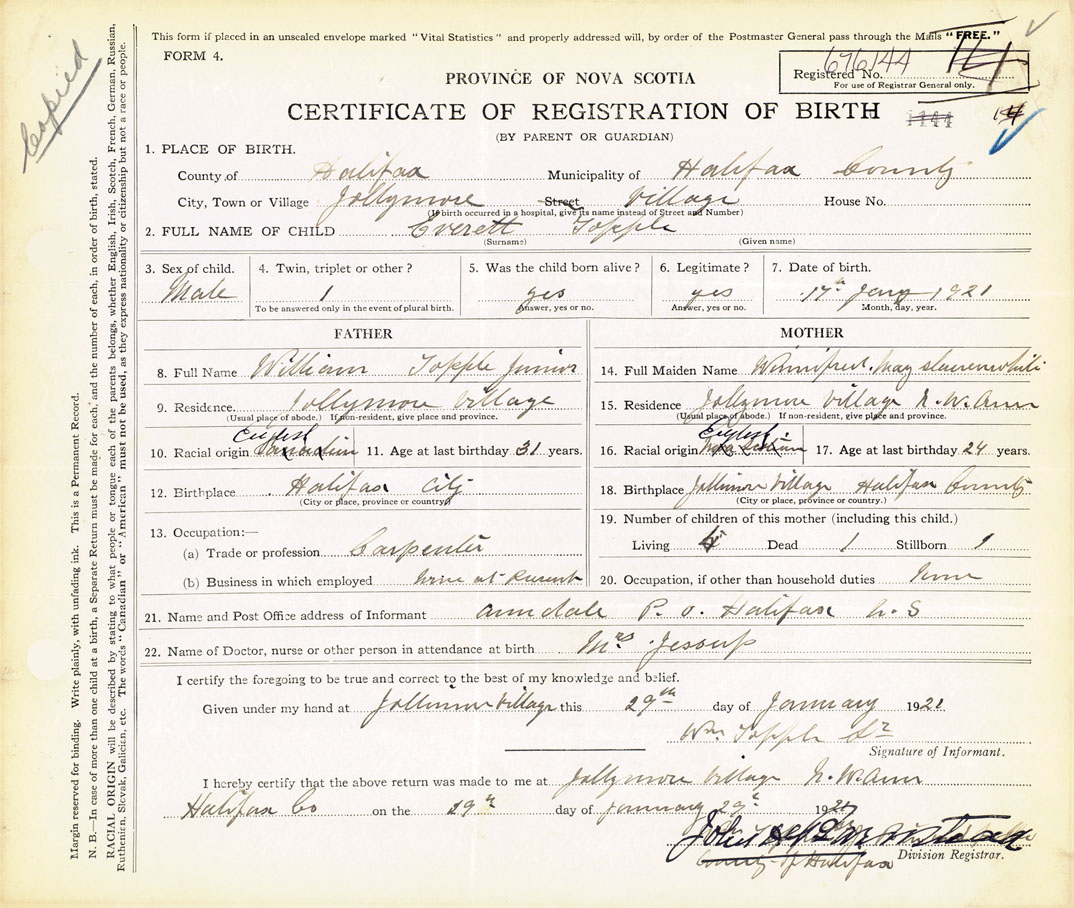 This form if placed in an unsealed envelope marked "Vital Statistics" and properly addressed will, by order of the Postmaster General pass through the Mails "FREE."
FORM 4.
Copied
14
676144
Registered No.
For use of Registrar General only.
PROVINCE OF NOVA SCOTIA
CERTIFICATE OF REGISTRATION OF BIRTH
1144
14
(BY PARENT OR GUARDIAN)
1. PLACE OF BIRTH.
County of Halifax Municipality of Halifax County
City, Town or Village Jollymore Street Village House No.
(If birth occurred in a hospital, give its name instead of Street and Number)
2. FULL NAME OF CHILD Everett Topple
(Surname) (Given name)
3. Sex of child. 4. Twin, triplet or other? 5. Was the child born alive? 6. Legitimate? 7. Date of birth.
Male 1 yes yes 17th Jany 1921
To be answered only in the event of plural birth. Answer, yes or no. Answer, yes or no. Month, day, year.
FATHER
8. Full Name William Topple Junior
9. Residence. Jollymore Village
(Usual place of abode.) If non-resident, give place and province.
English
10. Racial origin Canadian 11. Age at last birthday 31 years.
12. Birthplace Halifax City
(City or place, province or country)
13. Occupation:—
(a) Trade or profession Carpenter
(b) Business in which employed None at Present
MOTHER
14. Full Maiden Name Winnifred May
15. Residence Jollymore Village N. W. Arm
(Usual place of abode.) If non-resident, give place and province.
English
16. Racial origin Nova Scotian 17. Age at last birthday 24 years.
18. Birthplace Jollimore Village Halifax County
(City or place, province or country.)
19. Number of children of this mother (including this child.)
Living 4 Dead 1 Stillborn 1
20. Occupation, if other than household duties None
21. Name and Post Office address of Informant Armdale P. O. Halifax N. S
22. Name of Doctor, nurse or other person in attendance at birth Mrs Jessup
I certify the foregoing to be true and correct to the best of my knowledge and belief.
Given under my hand at Jollimore Village this 29th day of January 1921
Wm Topple Sr
Signature of Informant.
I hereby certify that the above return was made to me at Jollymore Village N. W. Arm
Halifax Co on the 29th day of January 29th 1921
John
County of Halifax Division Registrar.
Margin reserved for binding. Write plainly, with unfading ink. This is a Permanent Record.
N. B.—In case of more than one child at a birth, a Separate Return must be made for each, and the number of each, in order of birth, stated.
RACIAL ORIGIN will be described by stating to what people or tongue each of the parents belongs, whether English, Irish, Scotch, French, German, Russian,
Ruthenian, Slovak, Galician, etc. The words "Canadian" or "American" must not be used, as they express nationality or citizenship but not a race or people.